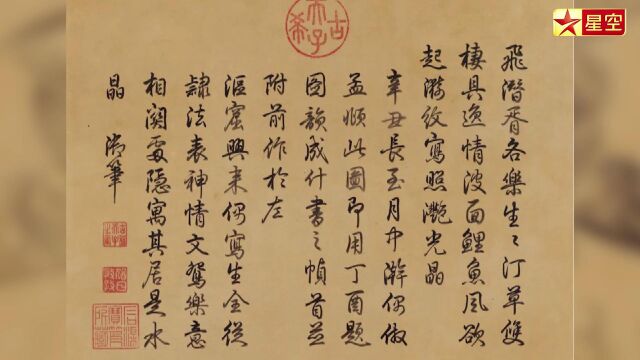 飛潛胥各樂生〻汀草雙
棲具逸情波面鯉魚風欲
起漪紋寫照灔光晶
辛丑長至月中澣偶倣
孟頫此圖即用丁酉題
圖韻成什書之幀首並
附前作於左
漚窠興來偶寫生全從
隸法表神情文鴛樂意
相關處隱寓其居是水
晶 御筆
古希天子
星空